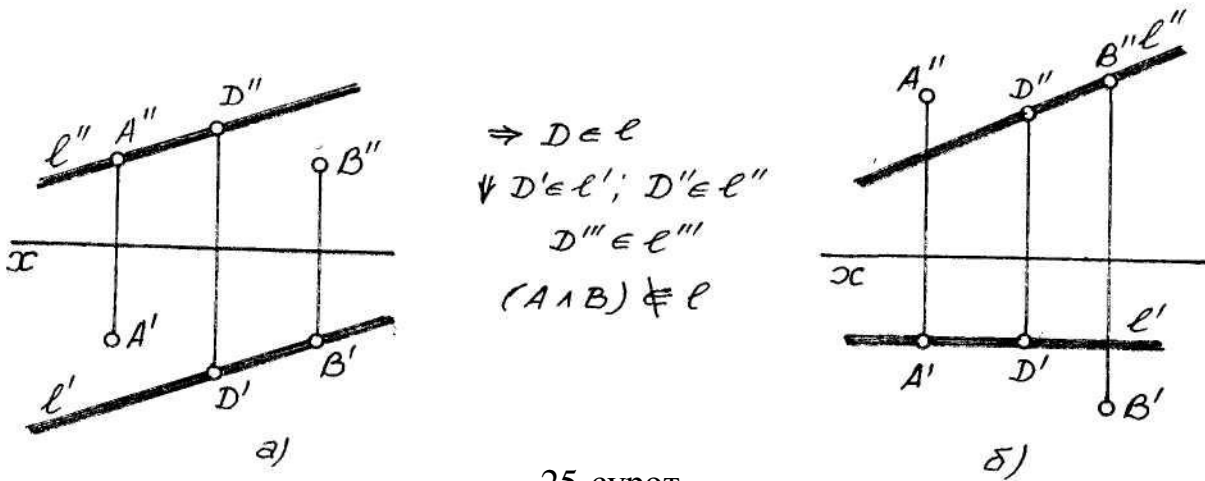 l'' A'' D'' B''
x
A'
l' D' B'
a)
⇒ D ∈ l
⇓ D' ∈ l'; D'' ∈ l''
D''' ∈ l'''
(A ∧ B) ∉ l
A'' D'' B'' l''
x
l'
A' D'
B'
б)
25-сурет